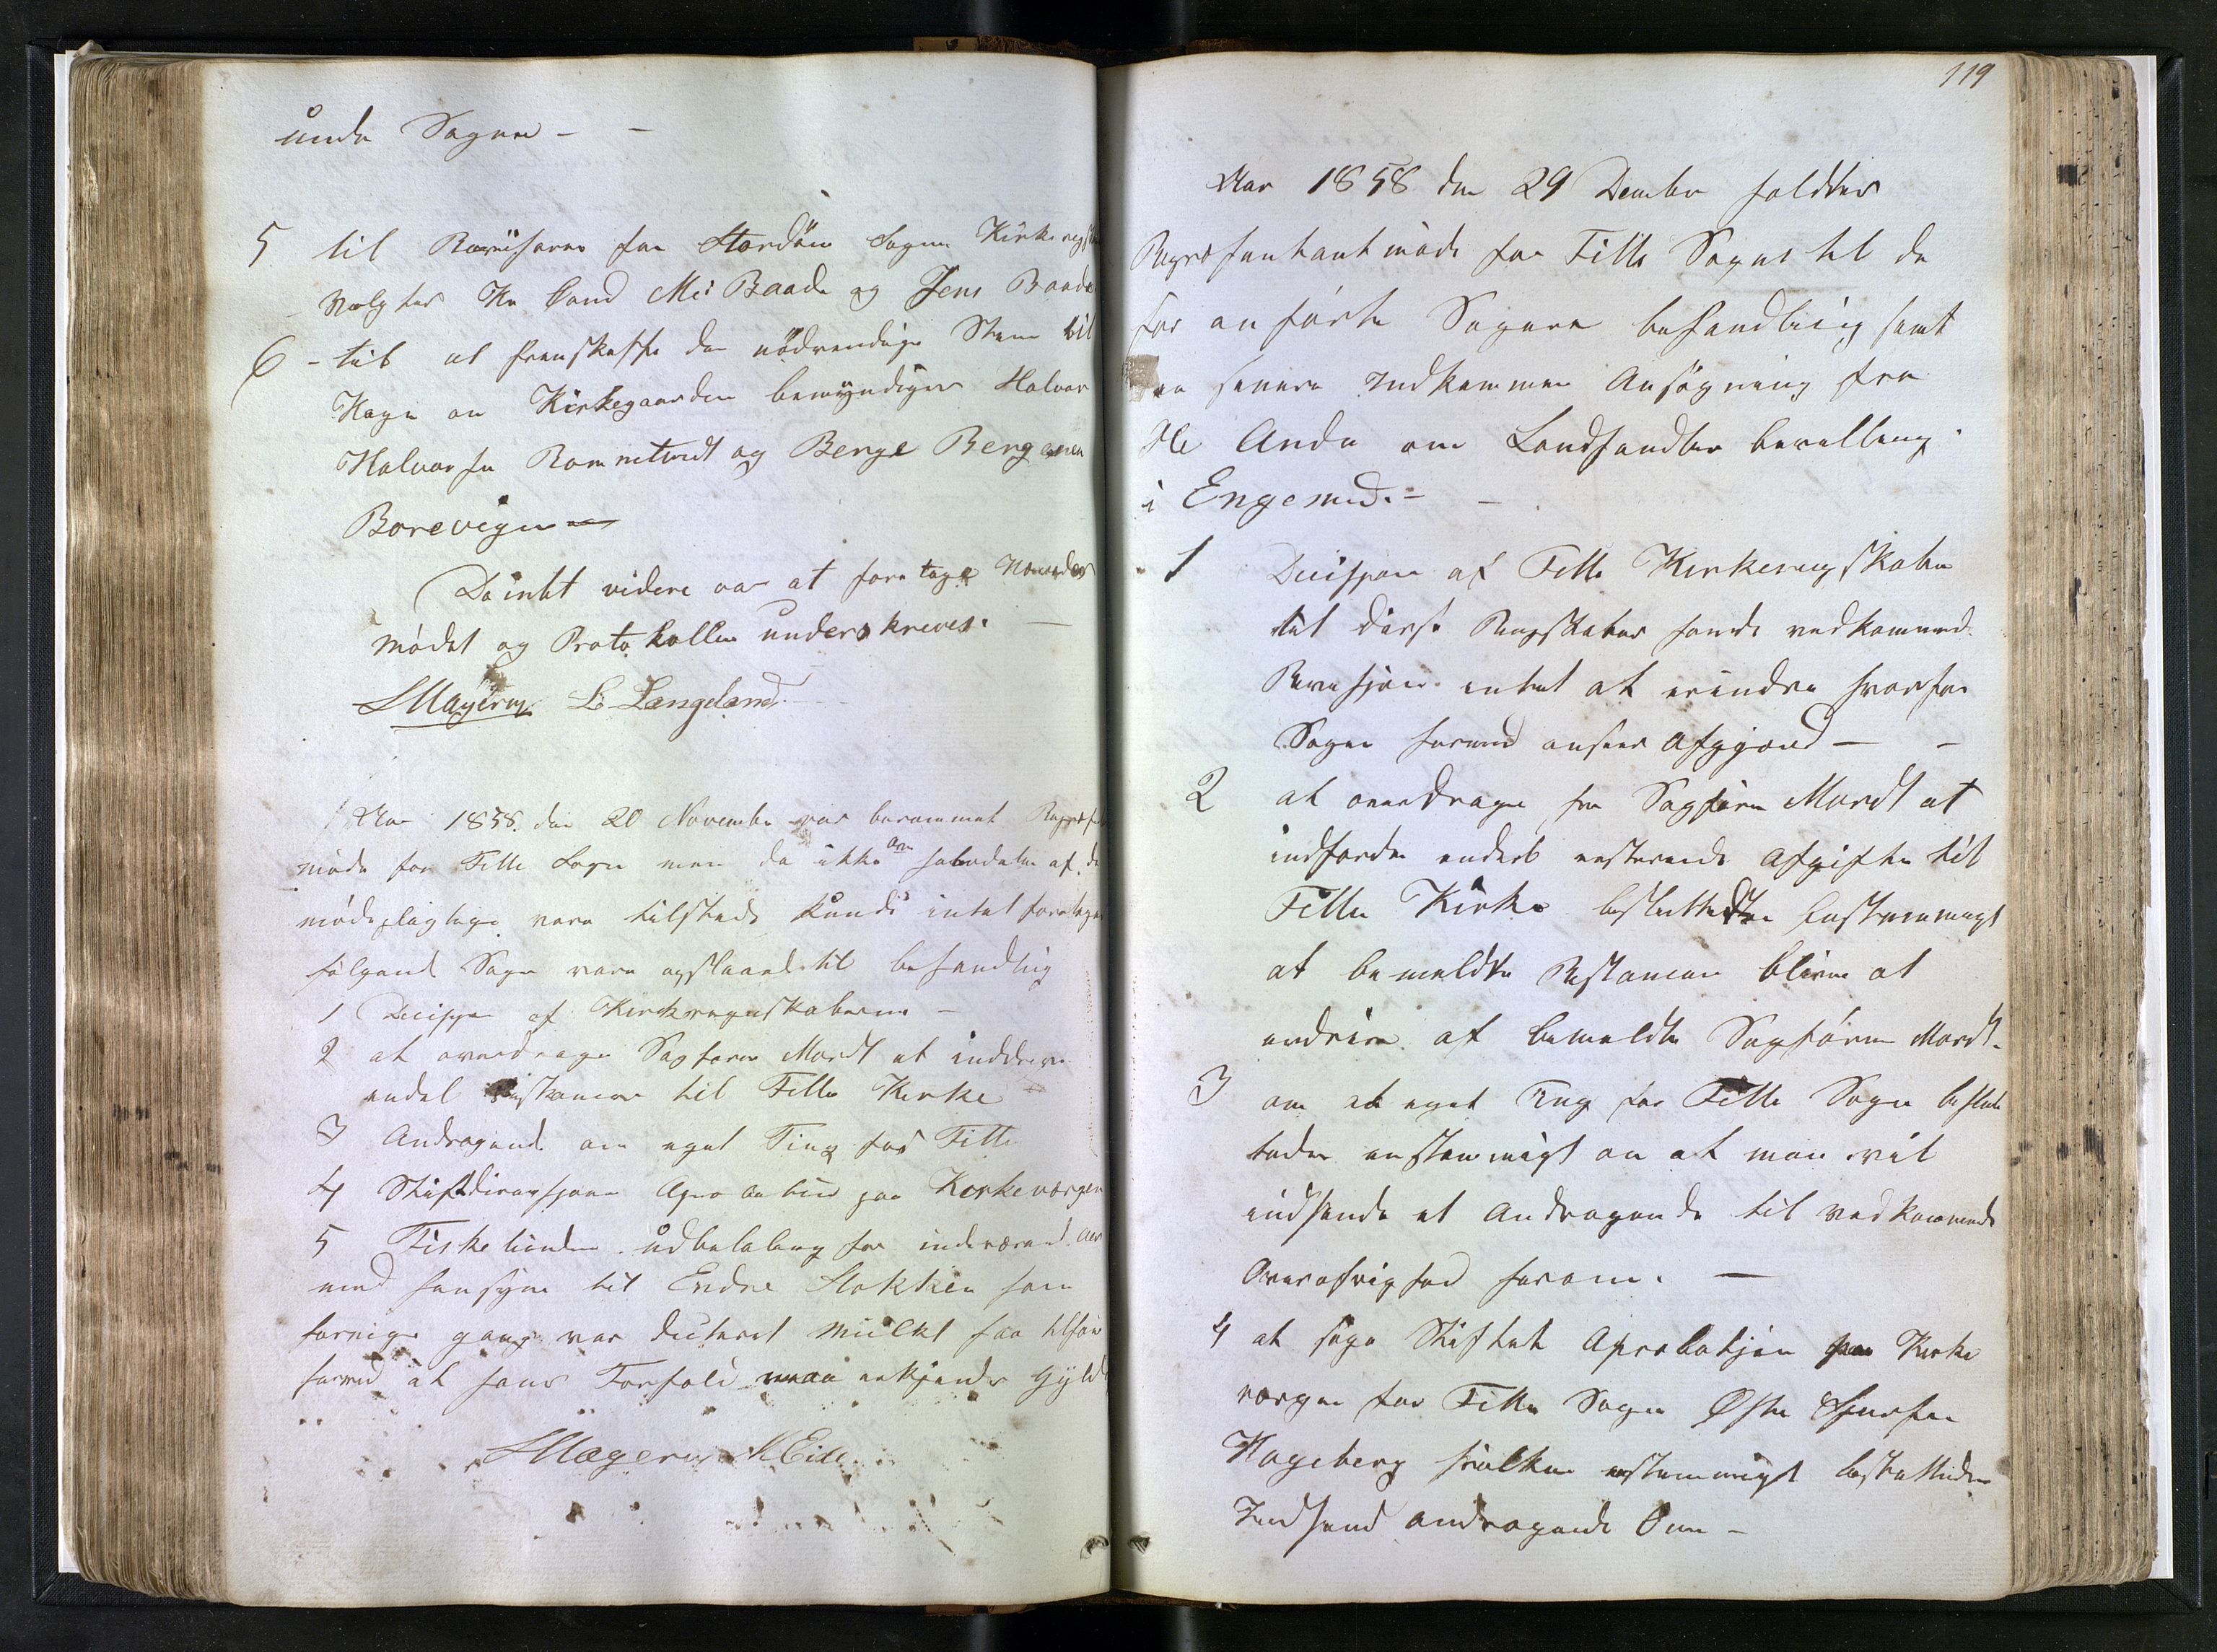 unde Sagene -
5 til Revisorer for Stordøen Sogns Kirkeregsk
Valgtes Hr Cand Me: Baade og Jens Baade
6 - til at fremskaffe den nödvendige Steen til
Kirkegaarden bemyndiges Halvor
Halvorsen Rommetvedt og Berge Bergesen
Borevigen
Da intet videre var at foretage
mödet og Protokollen underskreves.
SMagerøy L Langeland
Aar 1858 den 20 November var berammet
möde for Fitie Sogn men da ikke over halvdelen af de
mödepligtige vare tilstede kunde intet foretages
fölgende Sager vare opslaaed til behandling
1 Decission af Kirkeregnskaberne -
2 at overdrage Sagförer Mordt at inddrive
endel Restancer til Fitie Kirke
3 Andragende om eget Ting for Fitie
4 Stiftdirexsjonen Aprobation paa Kirkeværgen
5 Fisketienden udbetaling for indeværend Aar
med hensyn til Endre Stokken som
forrige gang var dicteret Mulkt
forved at hans Forfald maa erkjendes Gyldi
SMageröy M Eide
119
Aar 1858 den 29 Decembr holdtes
Repræsentantmöde for Fitie Sogn til de
för anförte Sagers behandling samt
en senere Indkommen Ansögning fra
Ole Anda om Landhandler bevilling
i Engesund. -
1 Decission af Fitie Kirkeregnskaber
til disse Regnskaber havde vedkommend
Revisjon intet at erindre hvorfor
Sagen hermed ansees Afgjord -
2 at overdrages hr Sagförer Mordt at
indfordre endeel resterende Afgifter til
Fitie Kirke besluttedes Eenstemmigt
at bemeldte Restancer bliver at
inddrive af bemeldte Sagförer Mordt.
3 om et eget Ting for Fitie Sogn beslut
tedes enstemmigt om at man vil
indsende et Andragende til vedkommende
Overøvrighed herom. -
4 at søge Stiftets Aprobatsjon paa Kirke
værgen for Fitie Sogn
Hageberg hvilken enstemmigt besluttedes
Indsend andragende Om -